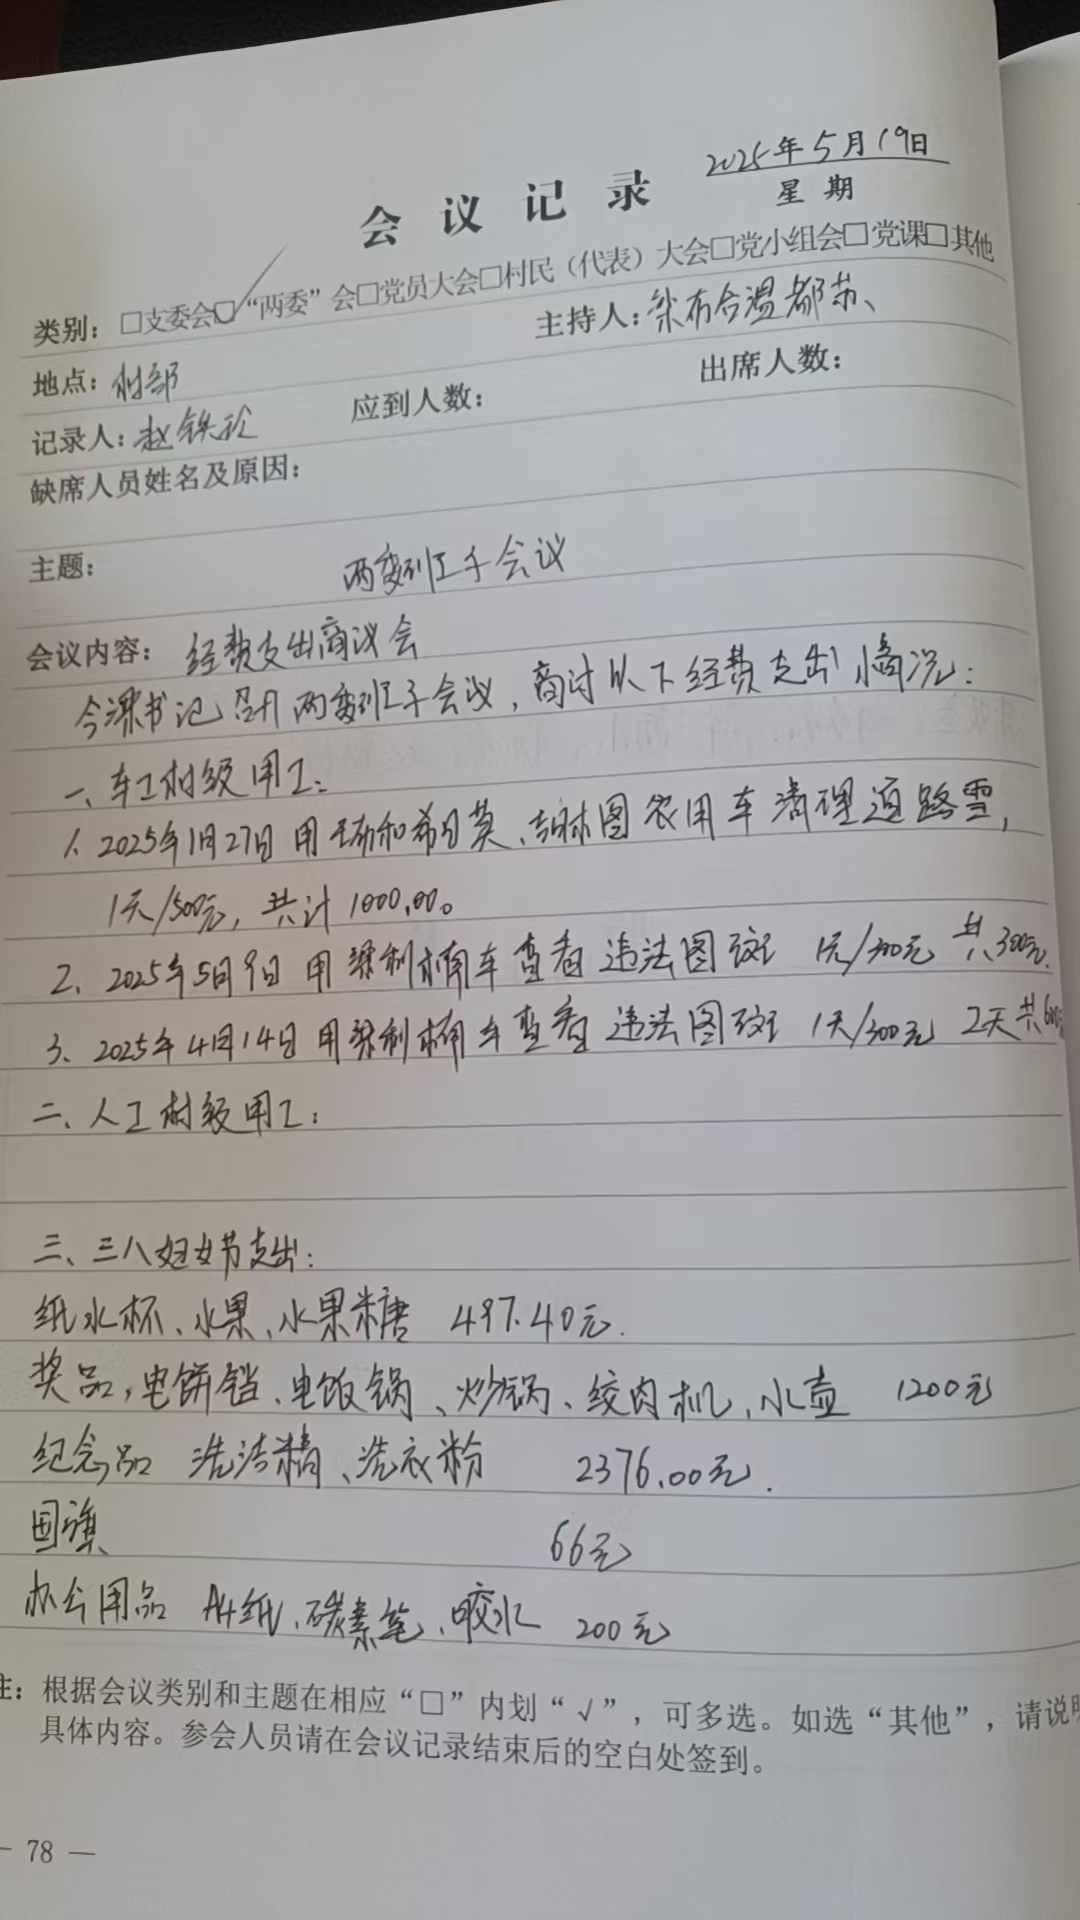 2025年5月19日
会议记录
星期
类别：□支委会☑“两委”会□党员大会□村民（代表）大会□党小组会□党课□其他
地点：村部 主持人：梁布合温都苏、
记录人：赵铁 应到人数： 出席人数：
缺席人员姓名及原因：
主题： 两委班子会议
会议内容：经费支出商议会
今梁书记召开两委班子会议，商讨以下经费支出情况：
一、车工村级用工：
1、2025年1月27日用 和希日莫、胡林图农用车清理道路雪，
1天/500元，共计1000.00。
2、2025年5月9日用梁利 车查看违法图斑 1天/300元 共300元.
3、2025年4月14日用梁利 车查看违法图斑 1天/300元 2天共600
二、人工村级用工：
三、三八妇女节支出：
纸水杯、水果、水果糖 497.40元.
奖品，电饼铛、电饭锅、炒锅、绞肉机、水壶 1200元
纪念品 洗洁精、洗衣粉 2376.00元.
国旗 66元
办公用品 A4纸、碳素笔、胶水 200元
注：根据会议类别和主题在相应“□”内划“√”，可多选。如选“其他”，请说明
具体内容。参会人员请在会议记录结束后的空白处签到。
— 78 —